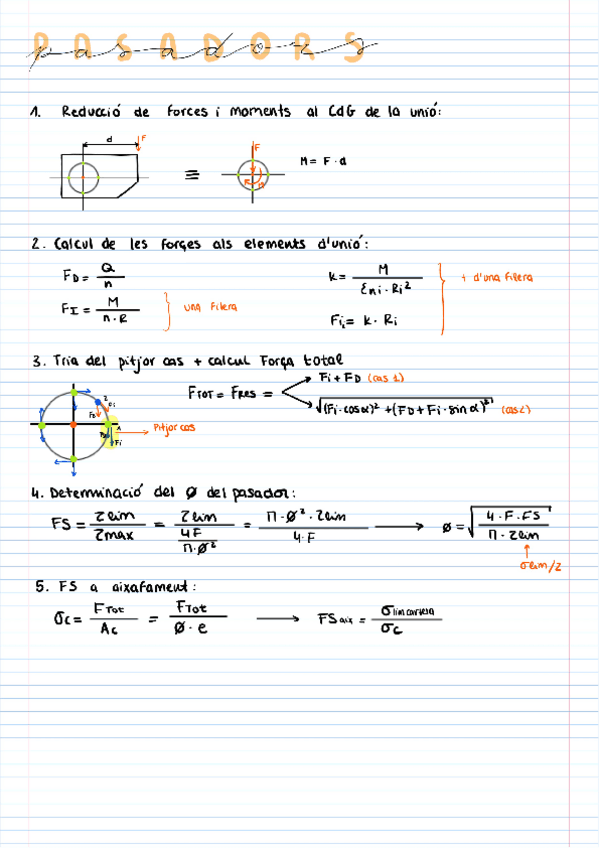 PASADORS
1. Reducció de forces i moments al CdG de la unió:
d F
≡
F
M
M = F · d
2. Calcul de les forçes als elements d'unió:
F_D = Q / n
F_I = M / (n · R)
una filera
k = M / (Σni · Ri²)
Fi = k · Ri
+ d'una filera
3. Tria del pitjor cas + calcul Força total
F_TOT = F_RES =
Fi + F_D (cas 1)
√((Fi · cosα)² + (F_D + Fi · sinα)²) (cas 2)
2
1
Fi
Pitjor cas
4. Determinació del Ø del pasador:
FS = τlim / τmax = τlim / (4F / (π · Ø²)) = (π · Ø² · τlim) / (4 · F) → Ø = √((4 · F · FS) / (π · τlim))
↑
σlim/2
5. FS a aixafament:
σc = F_Tot / Ac = F_Tot / (Ø · e) → FS aix = σlim cartela / σc